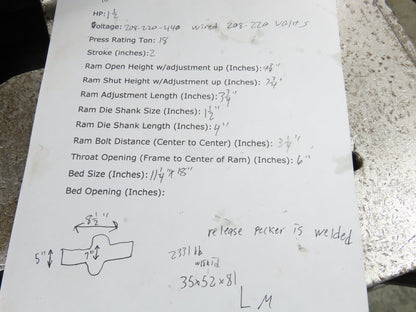 HP: 1 1/2
Voltage: 208-220-440 wired 208-220 Volts
Press Rating Ton: 18
Stroke (inches): 2
Ram Open Height w/adjustment up (Inches):
Ram Shut Height w/Adjustment up (Inches):
Ram Adjustment Length (Inches): 3 3/4"
Ram Die Shank Size (Inches): 1 1/2"
Ram Die Shank Length (Inches): 4"
Ram Bolt Distance (Center to Center) (Inches):
Throat Opening (Frame to Center of Ram) (Inches): 6"
Bed Size (Inches): 11 1/4" x 18"
Bed Opening (Inches):
8 1/2"
5"
7"
release pecker is welded
2331 lb
w/skid
35x52x81
L M